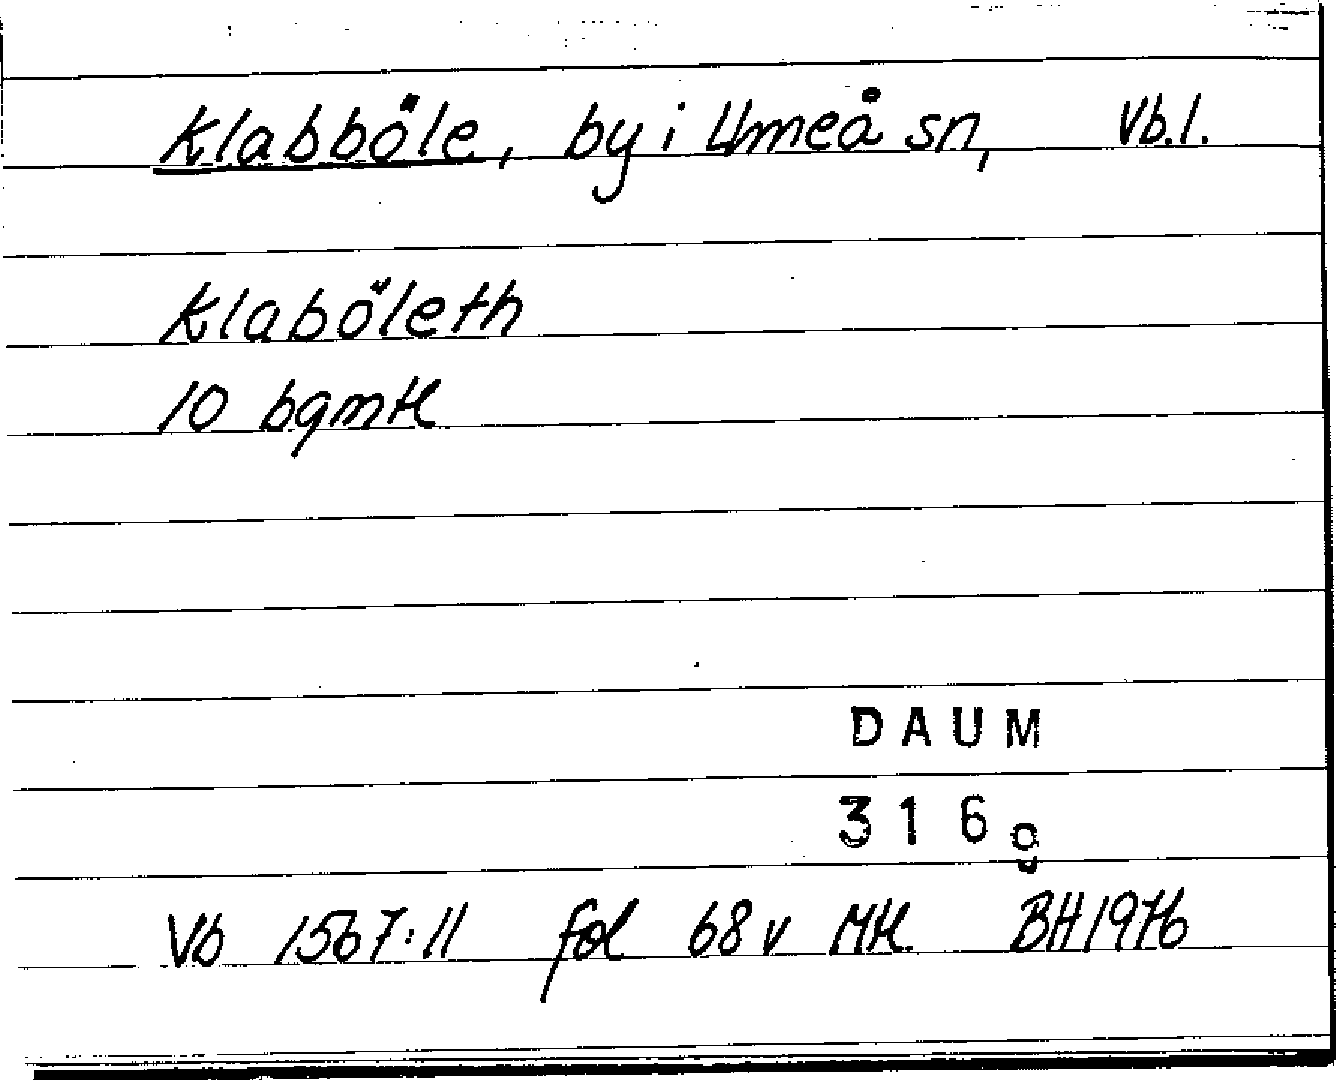 Klabböle, by i Umeå sn, Vb.l.
Klaböleth
10 bgmtl
DAUM
316g
Vb 1567:11 fol 68 v Mtl. BH 1976